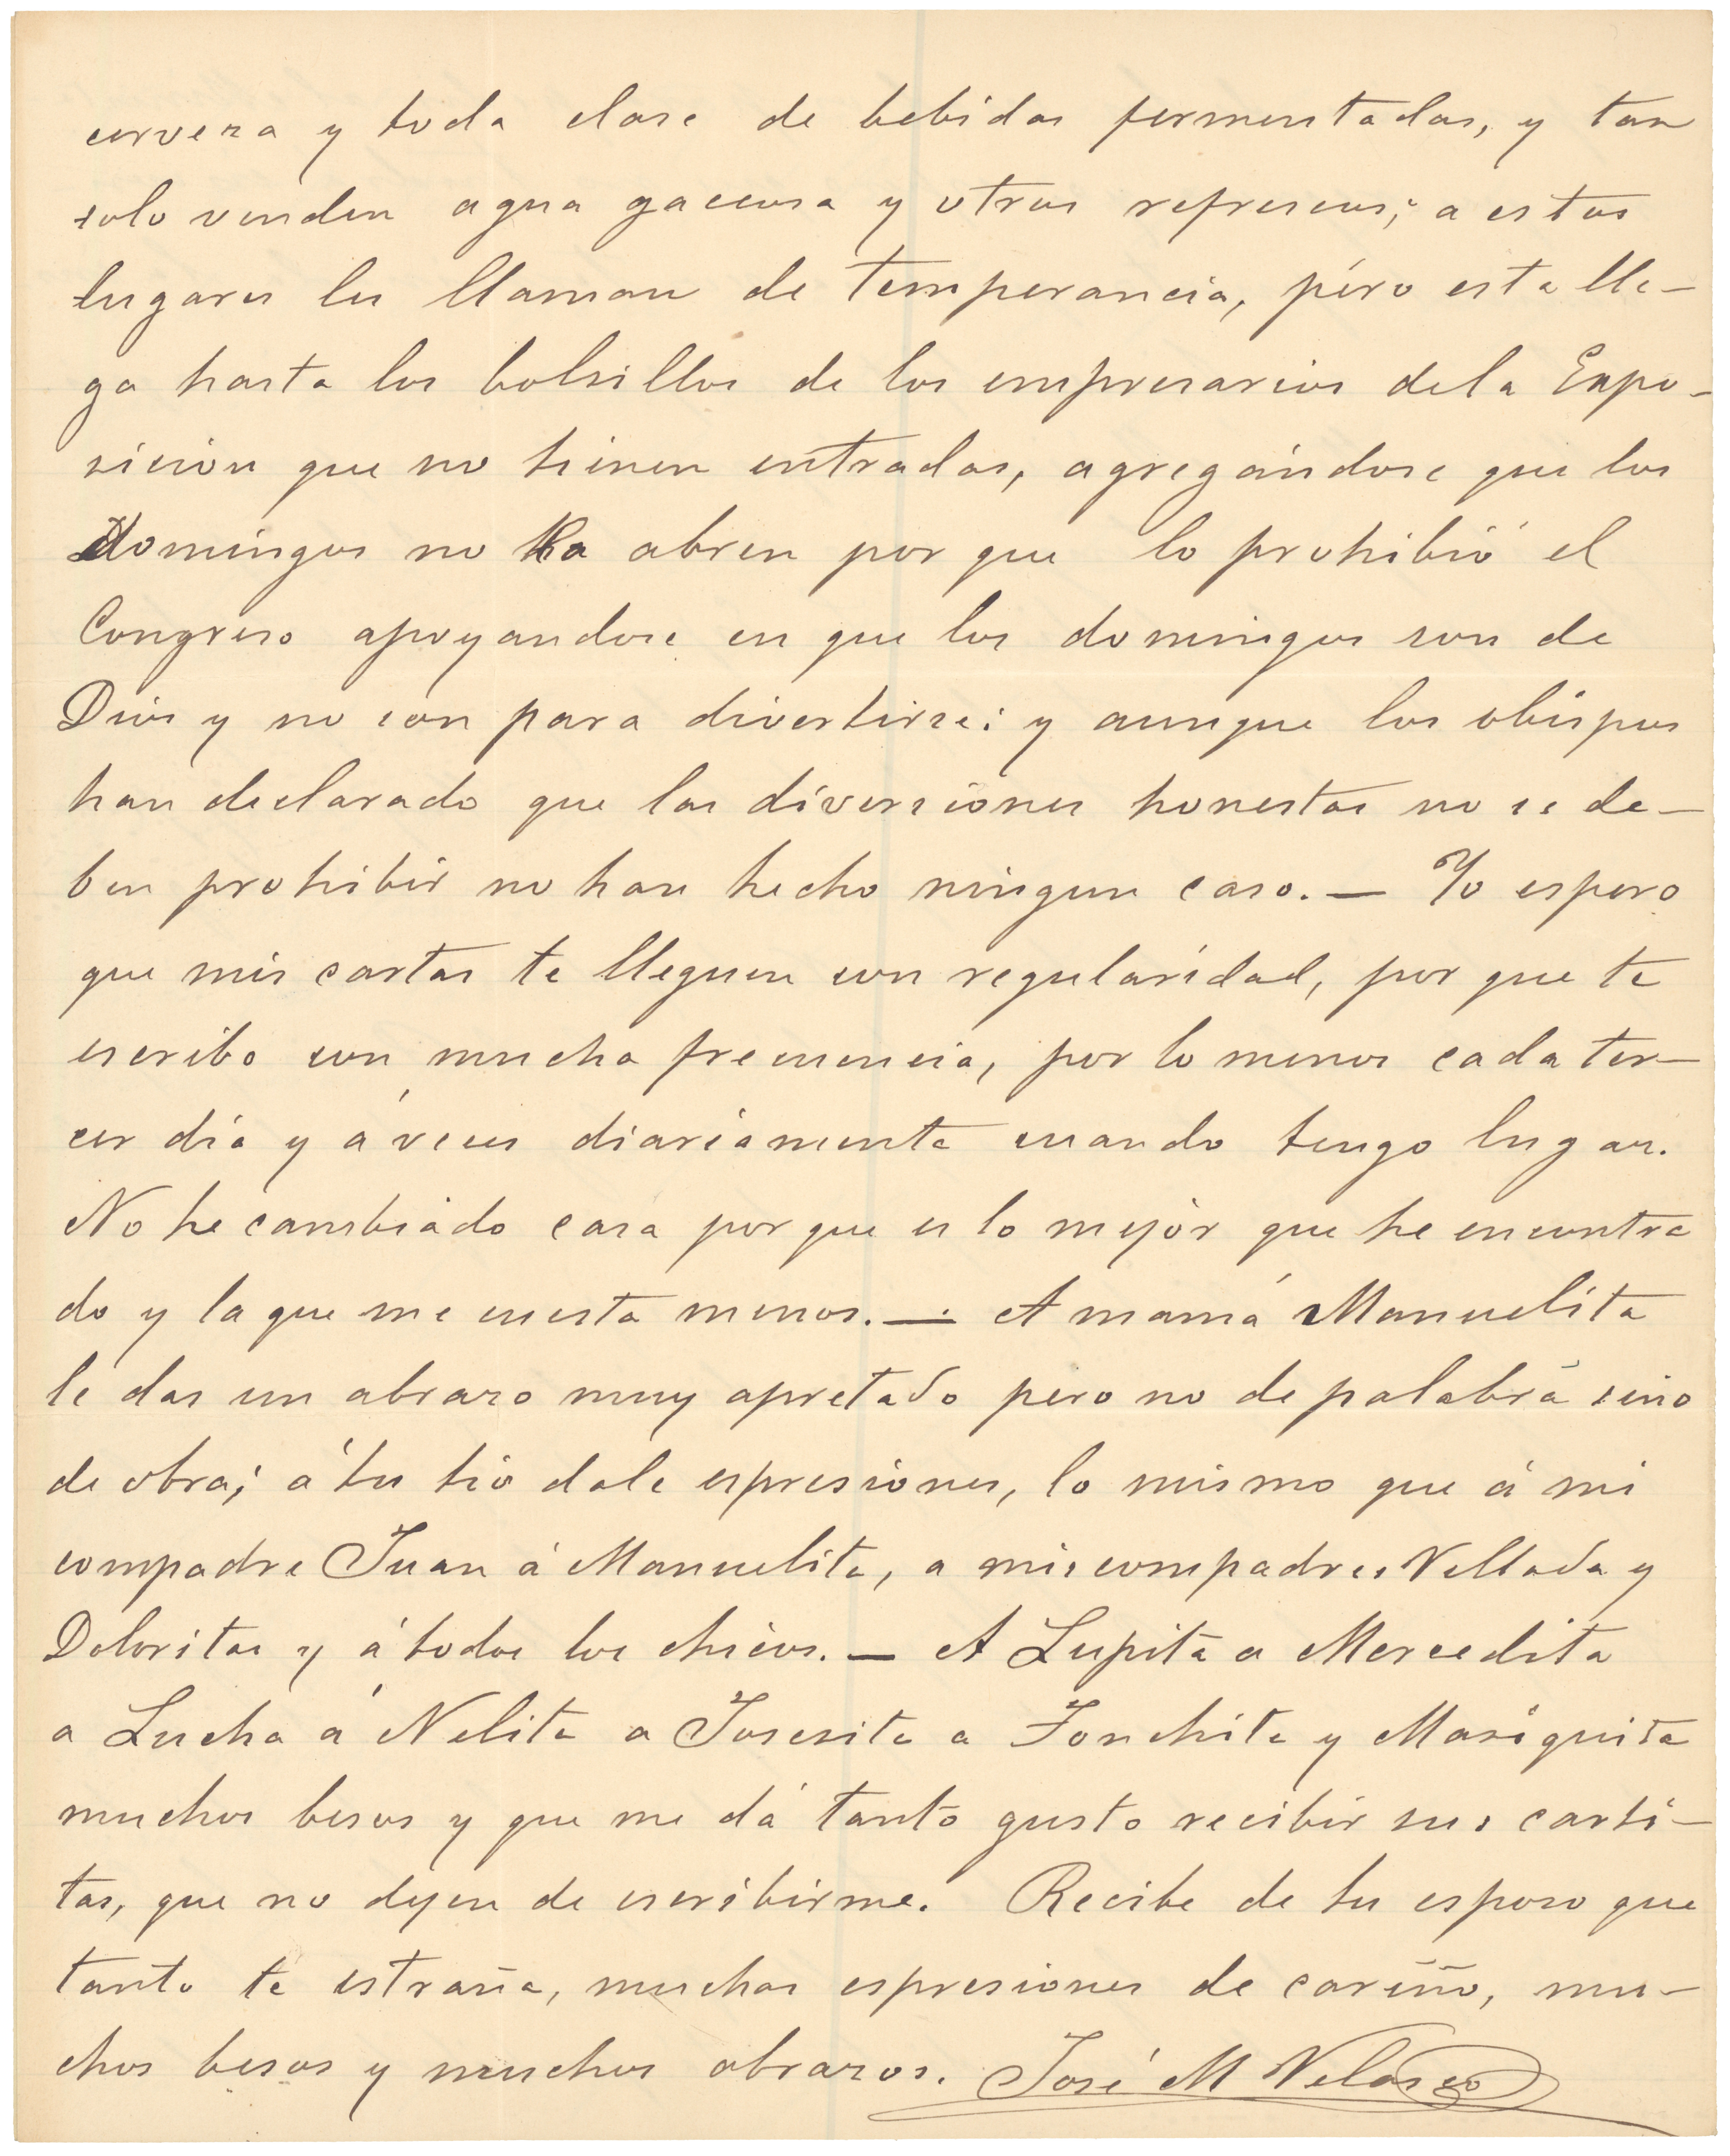 cerveza y toda clase de bebidas fermentadas, y tan
solo venden agua gaceosa y otros refrescos; a estos
lugares les llaman de temperancia, péro esta lle-
ga hasta los bolsillos de los empresarios dela Expo-
sicion que no tienen entradas, agregándose que los
Domingos no la abren por que lo prohibió el
Congreso apoyandose en que los domingos son de
Dios y no son para divertirse: y aunque los obispos
han declarado que las diversiones honestas no se de-
ben prohibir no han hecho ningun caso. — Yo espero
que mis cartas te lleguen con regularidad, por que te
escribo con mucha frecuencia, por lo menos cada ter-
cer dia y á veces diariamente cuando tengo lugar.
No he cambiado casa por que es lo mejor que he encontra
do y la que me cuesta menos. — A mamá Manuelita
le das un abrazo muy apretado pero no de palabra sino
de obra; á tu tio dale espresiones, lo mismo que á mi
compadre Juan á Manuelita, a mis compadres Vellada y
Doloritas y á todos los chicos. — A Lupita a Mercedita
a Lucha á Nelita a Josesita a Fonchita y Mariquita
muchos besos y que me dá tanto gusto recibir sus carti-
tas, que no dejen de escribirme. Recibe de tu esposo que
tanto te estraña, muchas espresiones de cariño, mu-
chos besos y muchos abrazos. José M Velasco